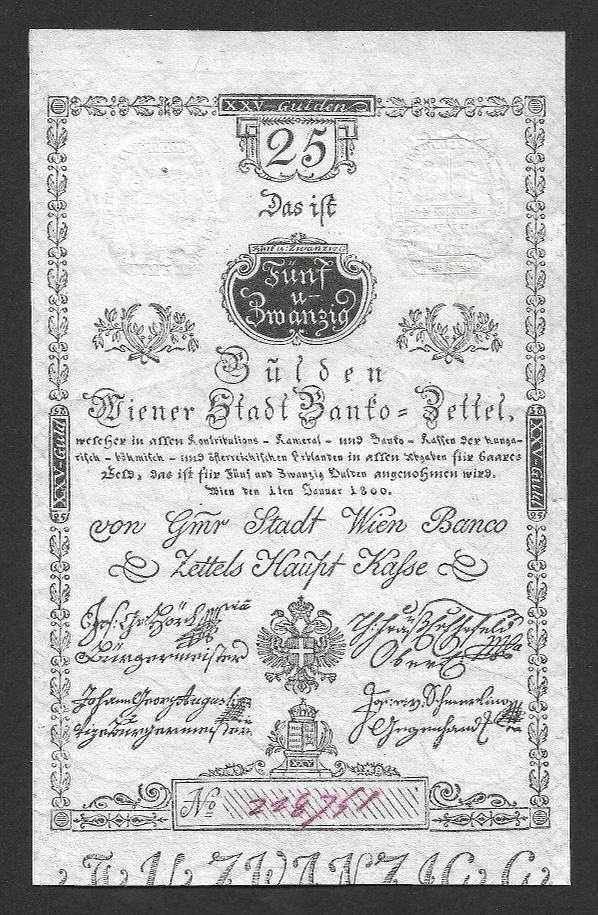 XXV-Gulden
25
Das ist
Fünf u. Zwanzig
Fünf
u-
Zwanzig
Gulden
Wiener Stadt Banko=Zettel,
welcher in allen Kontributions - Kameral - und Banko - Kassen der hunga-
risch - böhmisch - und österreichischen Erblanden in allen Abgaben für baares
Geld, das ist für Fünf und Zwanzig Gulden angenohmen wird.
Wien den 1ten Januar 1800.
XXV-Guld
XXV-Guld
25
25
von Gmr Stadt Wien Banco
Zettels Haupt Kasse
Jos: Hörl
Bürgermeister
Ober
Johann Georg Augusti
Vizebürgermeister
Jos: v. Schmerling
Gegenhand
No 228751